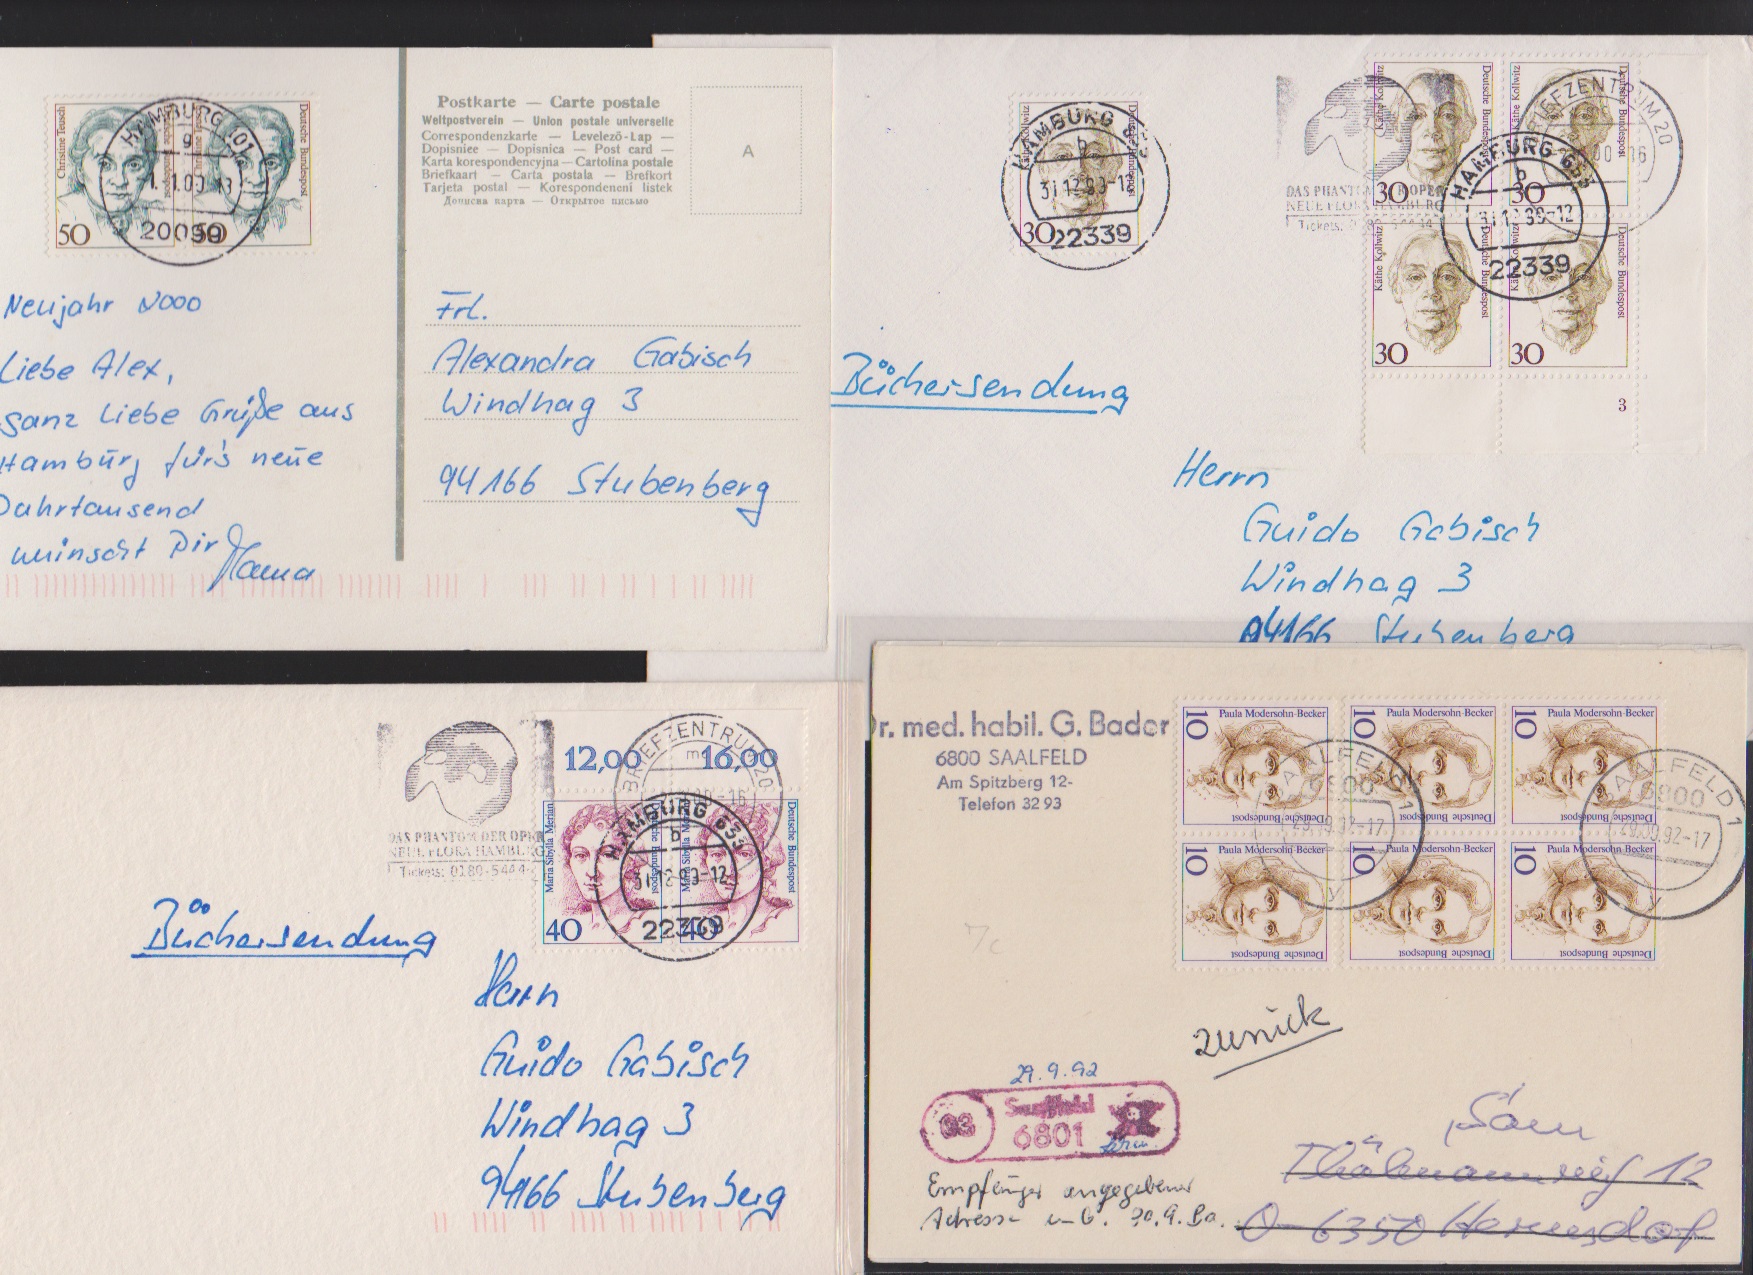 Christine Teusch
Deutsche Bundespost
50
50
HAMBURG 101
g
20099
Postkarte — Carte postale
Weltpostverein — Union postale universelle
Correspondenzkarte — Levelező-Lap —
Dopisniee — Dopisnica — Post card —
Karta korespondencyjna — Cartolina postale
Briefkaart — Carta postala — Brefkort
Tarjeta postal — Korespondencni listek
Дописна карта — Открытое письмо
A
Neujahr 2000
Liebe Alex,
ganz liebe Grüße aus
Hamburg für's neue
Jahrtausend
wünscht Dir Mama
Frl.
Alexandra Gabisch
Windhag 3
94166 Stubenberg
Käthe Kollwitz
30
HAMBURG
b
31.12.99-12
22339
DAS PHANTOM DER OPER
NEUE FLORA HAMBURG
Tickets:
BRIEFZENTRUM 20
Käthe Kollwitz
Deutsche Bundespost
30
Käthe Kollwitz
30
HAMBURG 633
b
31.12.99-12
22339
Käthe Kollwitz
Deutsche Bundespost
30
Käthe Kollwitz
Deutsche Bundespost
30
3
Büchersendung
Herrn
Guido Gabisch
Windhag 3
94166 Stubenberg
DAS PHANTOM DER OPER
NEUE FLORA HAMBURG
Tickets: 0180-5444-
BRIEFZENTRUM 20
12,00
16,00
Maria Sibylla Merian
Deutsche Bundespost
40
40
HAMBURG 633
b
31.12.99-12
Büchersendung
Herrn
Guido Gabisch
Windhag 3
94166 Stubenberg
Dr. med. habil. G. Bader
6800 SAALFELD
Am Spitzberg 12-
Telefon 32 93
10
Paula Modersohn-Becker
Deutsche Bundespost
10
Paula Modersohn-Becker
Deutsche Bundespost
10
Paula Modersohn-Becker
Deutsche Bundespost
10
Paula Modersohn-Becker
Deutsche Bundespost
10
Paula Modersohn-Becker
Deutsche Bundespost
10
Paula Modersohn-Becker
Deutsche Bundespost
SAALFELD 1
6800
29.09.92-17
y
SAALFELD 1
6800
29.09.92-17
y
7c
zurück
29.9.92
93
Saalfeld
6801
Empfänger angegebener
Adresse 30.9.
12
O-6350 Hermsdorf